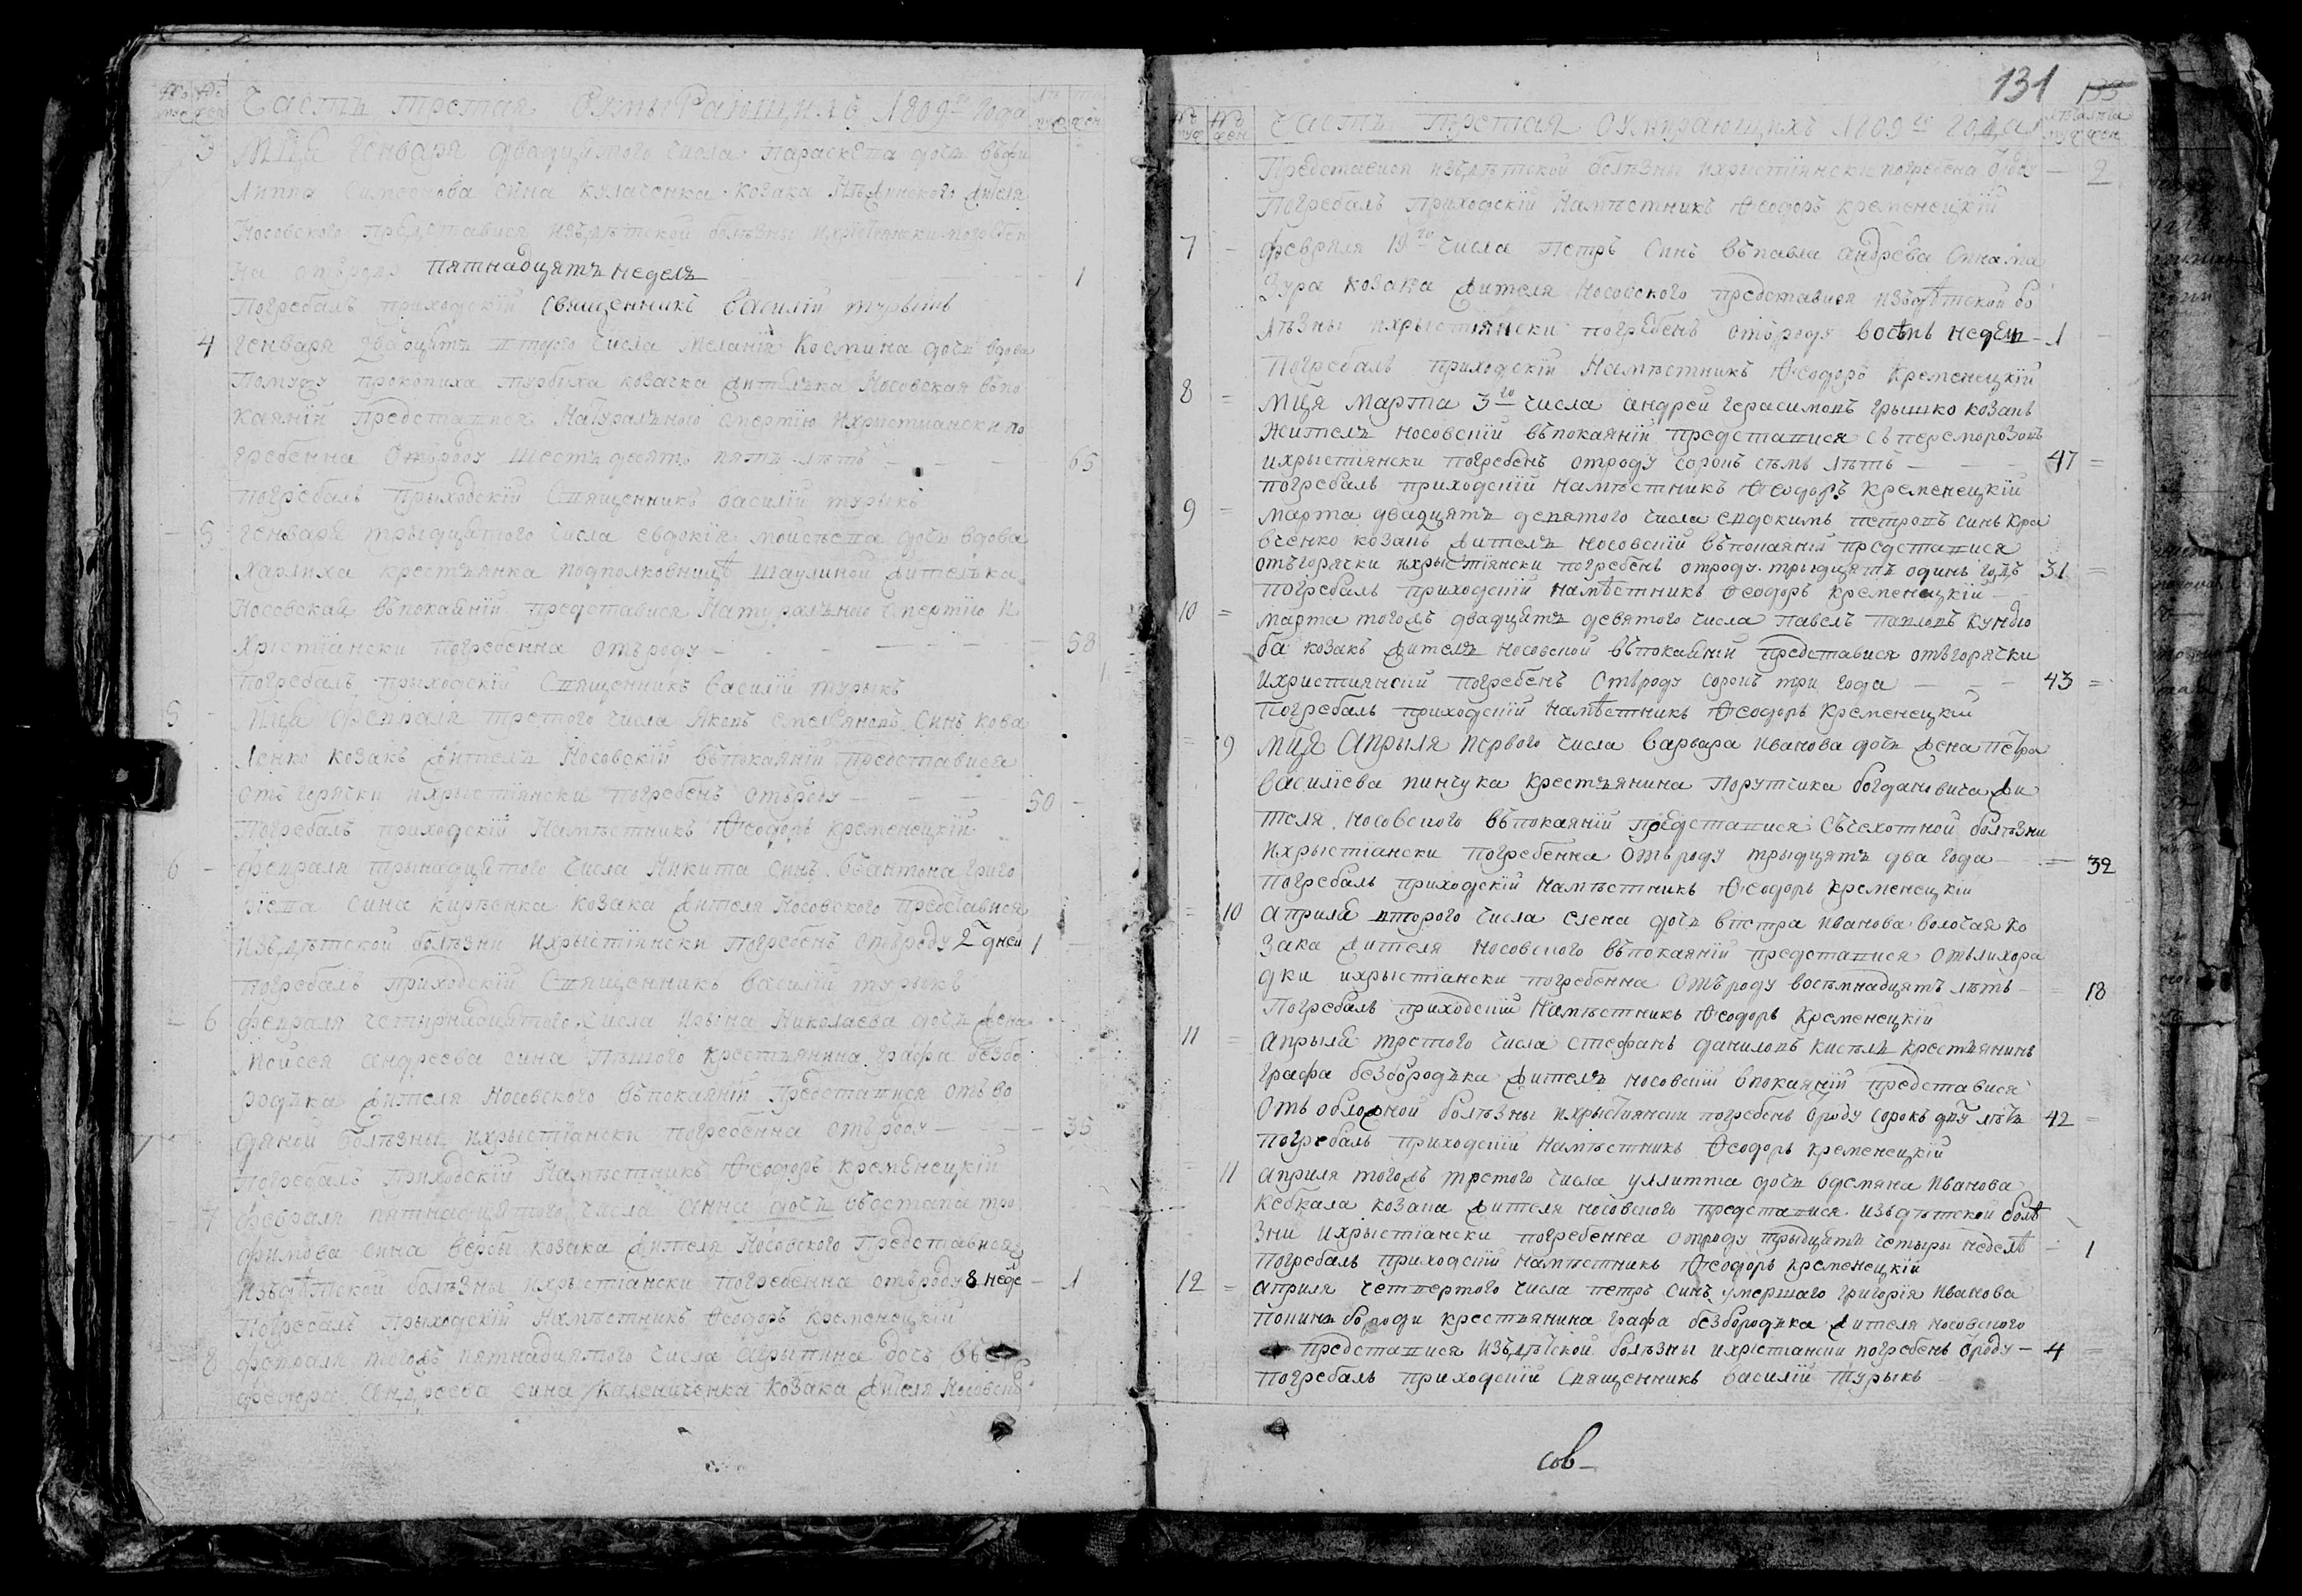 Часть третая Оумырающихъ 1809го года
3 Мця Генваря двадцятого числа Параскева дочь въфи
липпа Симеонова сина Кулаченка козака жителя
Носовского представися изъдѣтской болѣзни ихрыстіянски погребен
на отъроду пятнадцять недель 1
Погребалъ приходскій священникъ Василій Турыкъ
4 Генваря двадцять второго числа Меланія Космина дочь вдова
Помужу Прокопиха козачка жителька Носовская въпо
каяніи представися натуральною смертію ихристиански по
гребенна отъроду шестьдесятъ пять лѣтъ 65
погребалъ прыходскій священникъ василій турыкъ
5 Генваря трыдцятого числа евдокія моисѣева дочь вдова
Харлиха крестьянка подполковницѣ Шаулиной жителька
Носовская въпокаяніи представися натуральною смертію и
хрістіански погребенна отъроду 58
погребалъ прыходскій священникъ василій турыкъ
5 Мця февраля третого числа Яковъ емеляновъ синъ кова
ленко козакъ житель Носовскій въпокаяніи представися
отъ горячки ихрыстіянски погребенъ отъроду 50
Погребалъ приходскій Намѣстникъ Ѳеодоръ Кременецкій
6 февраля трынадцятого числа Никита синъ въантона григо
ріева сина Кирѣенка козака жителя Носовского представися
изъдѣтской болѣзни ихрыстіянски погребенъ отъроду 2 дней 1
погребалъ приходскій священникъ василій турыкъ
6 февраля четырнадцятого числа Ирына Николаева дочь жена
Мойсея андреева сина крестьянина графа безбо
родька жителя Носовского въпокаяніи представися отъ во
дяной болѣзны ихрыстіански погребенна отъроду 35
погребалъ приходскій Намѣстникъ Ѳеодоръ Кременецкій
7 февраля пятнадцятого числа анна дочь въостапа тро
фимова сина вербы козака жителя Носовского представися
изъдѣтской болѣзны ихрыстіански погребенна отъроду 8 неде 1
Погребалъ прыходскій Намѣстникъ Ѳеодоръ Кременецкій
8 февраля тогожъ пятнадцятого числа агрыпина дочь въ
федора андреева сина Калениченка козака жителя Носовско
131 133
Часть третая оумирающихъ 1809го года
Представися изъдѣтской болѣзны ихрыстіянски погребена ѿроду 2
Погребалъ приходскій Намѣстникъ Ѳеодоръ Кременецкій
7 февраля 19го числа Петръ синъ въпавла андреева сина ма
зура козака жителя Носовского представися изъдѣтской бо
лѣзны ихрыстіянски погребенъ отъроду восѣмъ недель 1
Погребалъ приходскій Намѣстникъ Ѳеодоръ Кременецкій
8 Мця Марта 3го числа андрей Герасимовъ Грышко козакъ
житель носовскій въпокаяніи представися съперемороз
ихрыстіянски погребенъ отроду сорокъ сѣмъ лѣтъ 47
погребалъ приходскій намѣстникъ Ѳеодоръ Кременецкій
9 Марта двадцять девятого числа евдокимъ петровъ синъ кра
вченко козакъ житель носовскій въпокаяній представися
отъгорячки ихрыстіянски погребенъ отроду трыдцять одинъ годъ 31
погребалъ приходскій намѣстникъ Ѳеодоръ Кременецкій
10 Марта тогожъ двадцять девятого числа Павелъ Павловъ Кундю
ба козакъ житель носовской въпокаяній представися отъгорячки
ихристиянский погребенъ отъроду сорокъ три года 43
погребалъ приходский намѣстникъ Ѳеодоръ Кременецкій
9 Мця Апрыля первого числа Варвара иванова дочь жена петра
василіева пинчука крестьянина Порутчика богдановича жи
теля носовского въпокаяній представися съчехотной болѣзни
ихрыстіански погребенна отъроду трыдцять два года 32
погребалъ приходскій намѣстникъ Ѳеодоръ Кременецкій
10 Апрыля второго числа елена дочь впетра иванова волочая ко
зака жителя носовского въпокаяній представися отълихора
дки ихрыстіански погребенна отъроду восѣмнадцять лѣтъ 18
погребалъ приходскій Намѣстникъ Ѳеодоръ Кременецкій
11 Апрыля третого числа стефанъ даниловъ кисѣль крестьянинъ
графа безбородька житель носовскій впокаяній представися
отъ обложной болѣзны ихрыстиянски погребенъ ѿроду сорокъ два лѣта 42
погребалъ приходскій намѣстникъ Ѳеодоръ Кременецкій
11 Априля тогожъ третого числа уллитта дочь вдемяна иванова
Кебкала козака жителя носовского представися изъдѣтской болѣ
зни ихрыстіански погребенна отроду трыдцять четыры неделѣ 1
погребалъ приходскій намѣстникъ Ѳеодоръ Кременецкій
12 Априля четвертого числа петръ синъ умершаго григорія иванова
бороди крестьянина графа безбородька жителя носовского
представися изъдѣтской болѣзны ихрістіански погребенъ ѿроду 4
погребалъ приходскій священникъ Василій Турыкъ
сов